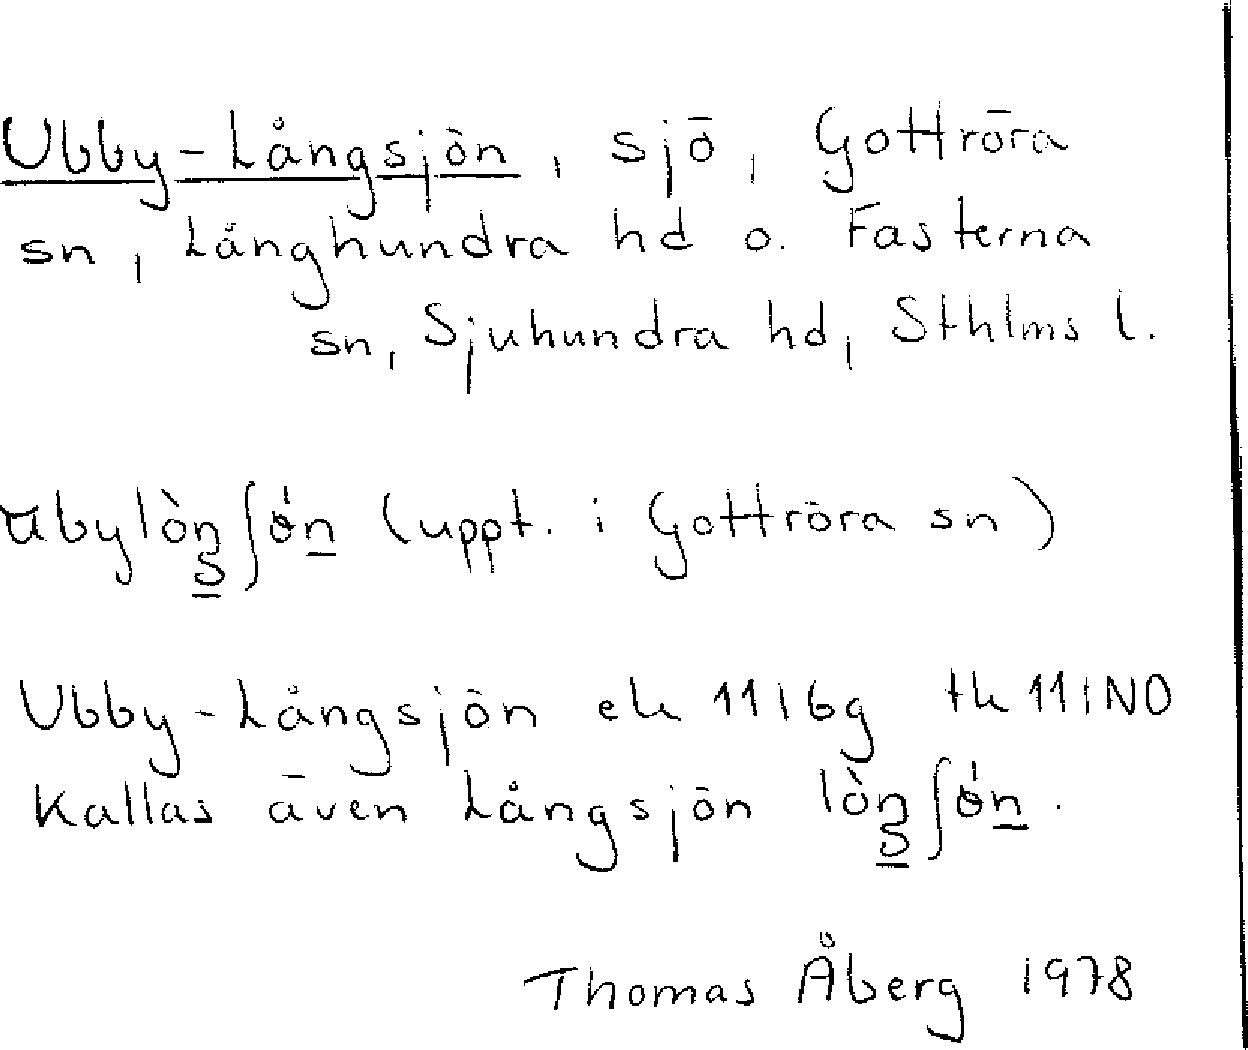 Ubby-Långsjön, sjö, Gottröra
sn, Långhundra hd o. Fasterna
sn, Sjuhundra hd, Sthlms l.
ubylòŋʃón (uppt. i Gottröra sn)
Ubby-Långsjön ek 11 i 6g tk 11 i NO
Kallas även Långsjön lóŋʃón.
Thomas Åberg 1978